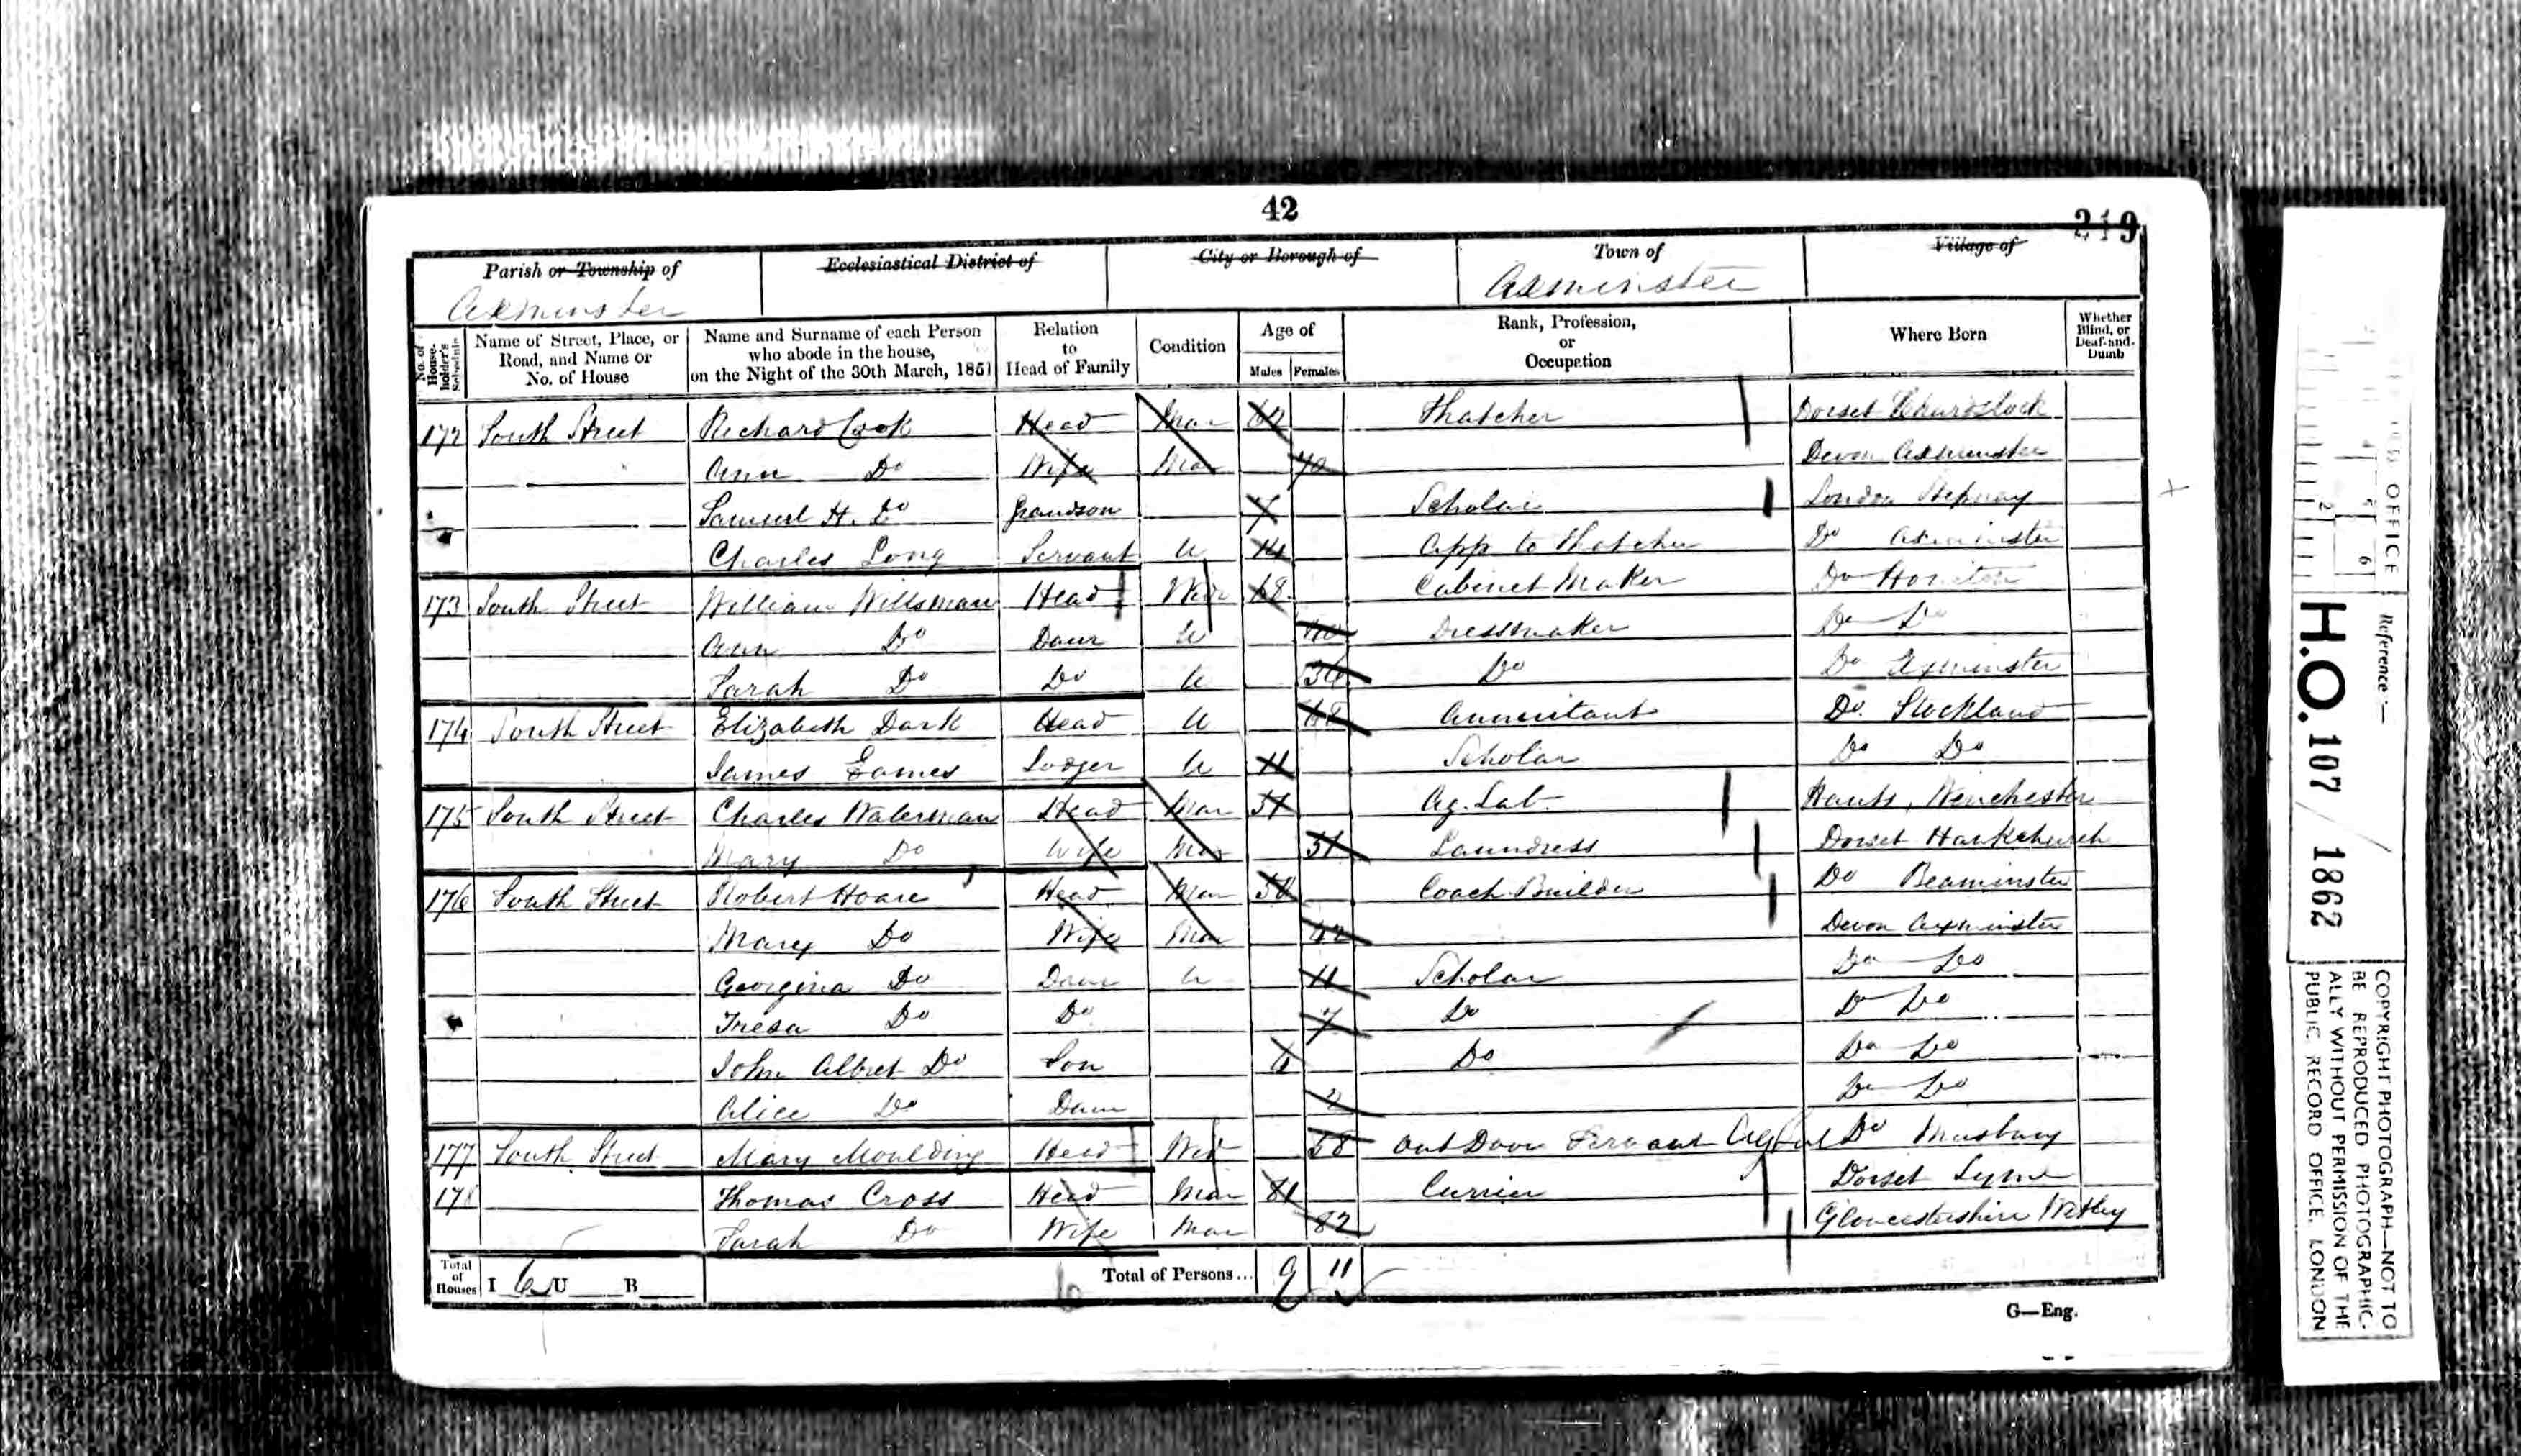 42
219
Parish or Township of
Axminster
Ecclesiastical District of
City or Borough of
Town of
Axminster
Village of
No. of House-holder's Schedule
Name of Street, Place, or Road, and Name or No. of House
Name and Surname of each Person who abode in the house, on the Night of the 30th March, 1851
Relation to Head of Family
Condition
Age of
Males Females
Rank, Profession, or Occupation
Where Born
Whether Blind, or Deaf-and-Dumb
172 South Street Richard Cook Head Mar Thatcher Dorset
Ann Do Wife Mar 70 Devon Axminster
Samuel H. Do Grandson 7 Scholar London Stepney
Charles Long Servant U 14 App to Thatcher Do Axminster
173 South Street William Willsman Head 68 Cabinet Maker Do Honiton
Ann Do Daur U 40 Dressmaker Do Do
Sarah Do Do U 36 Do Do Axminster
174 South Street Elizabeth Dark Head U 68 Annuitant Do. Stockland
James Eames Lodger U 11 Scholar Do Do
175 South Street Charles Waterman Head Mar 51 Ag. Lab. Hants, Winchester
Mary Do Wife Mar 51 Laundress Dorset Hawkchurch
176 South Street Robert Hoare Head Mar 50 Coach Builder Do Beaminster
Mary Do Wife Mar 42 Devon Axminster
Georgina Do Daur U 11 Scholar Do Do
Tresa Do Do 7 Do Do Do
John Albret Do Son 6 Do Do Do
Alice Do Daur 2 Do Do
177 South Street Mary Moulding Head Wid 58 Out Door Servant Do Musbury
178 Thomas Cross Head Mar 81 Currier Dorset Lyme
Sarah Do Wife Mar 82 Gloucestershire
Total of Houses I 6 U B
Total of Persons... 9 11
G—Eng.
OFFICE
Reference :—
H.O. 107 / 1862
COPYRIGHT PHOTOGRAPH—NOT TO
BE REPRODUCED PHOTOGRAPHIC-
ALLY WITHOUT PERMISSION OF THE
PUBLIC RECORD OFFICE, LONDON